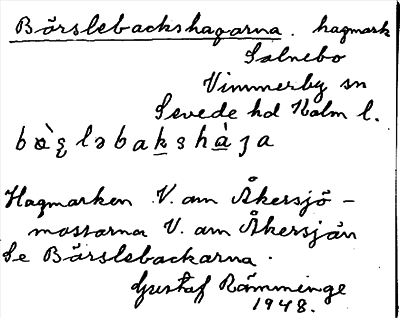 Bärslebackshagarna. hagmark
Salnebo
Vimmerby sn
Sevede hd Kalm l.
Hagmarken V. om Åkersjö-
mossarna V. om Åkersjön
Se Bärslebackarna.
Gustaf Rämminge
1948.